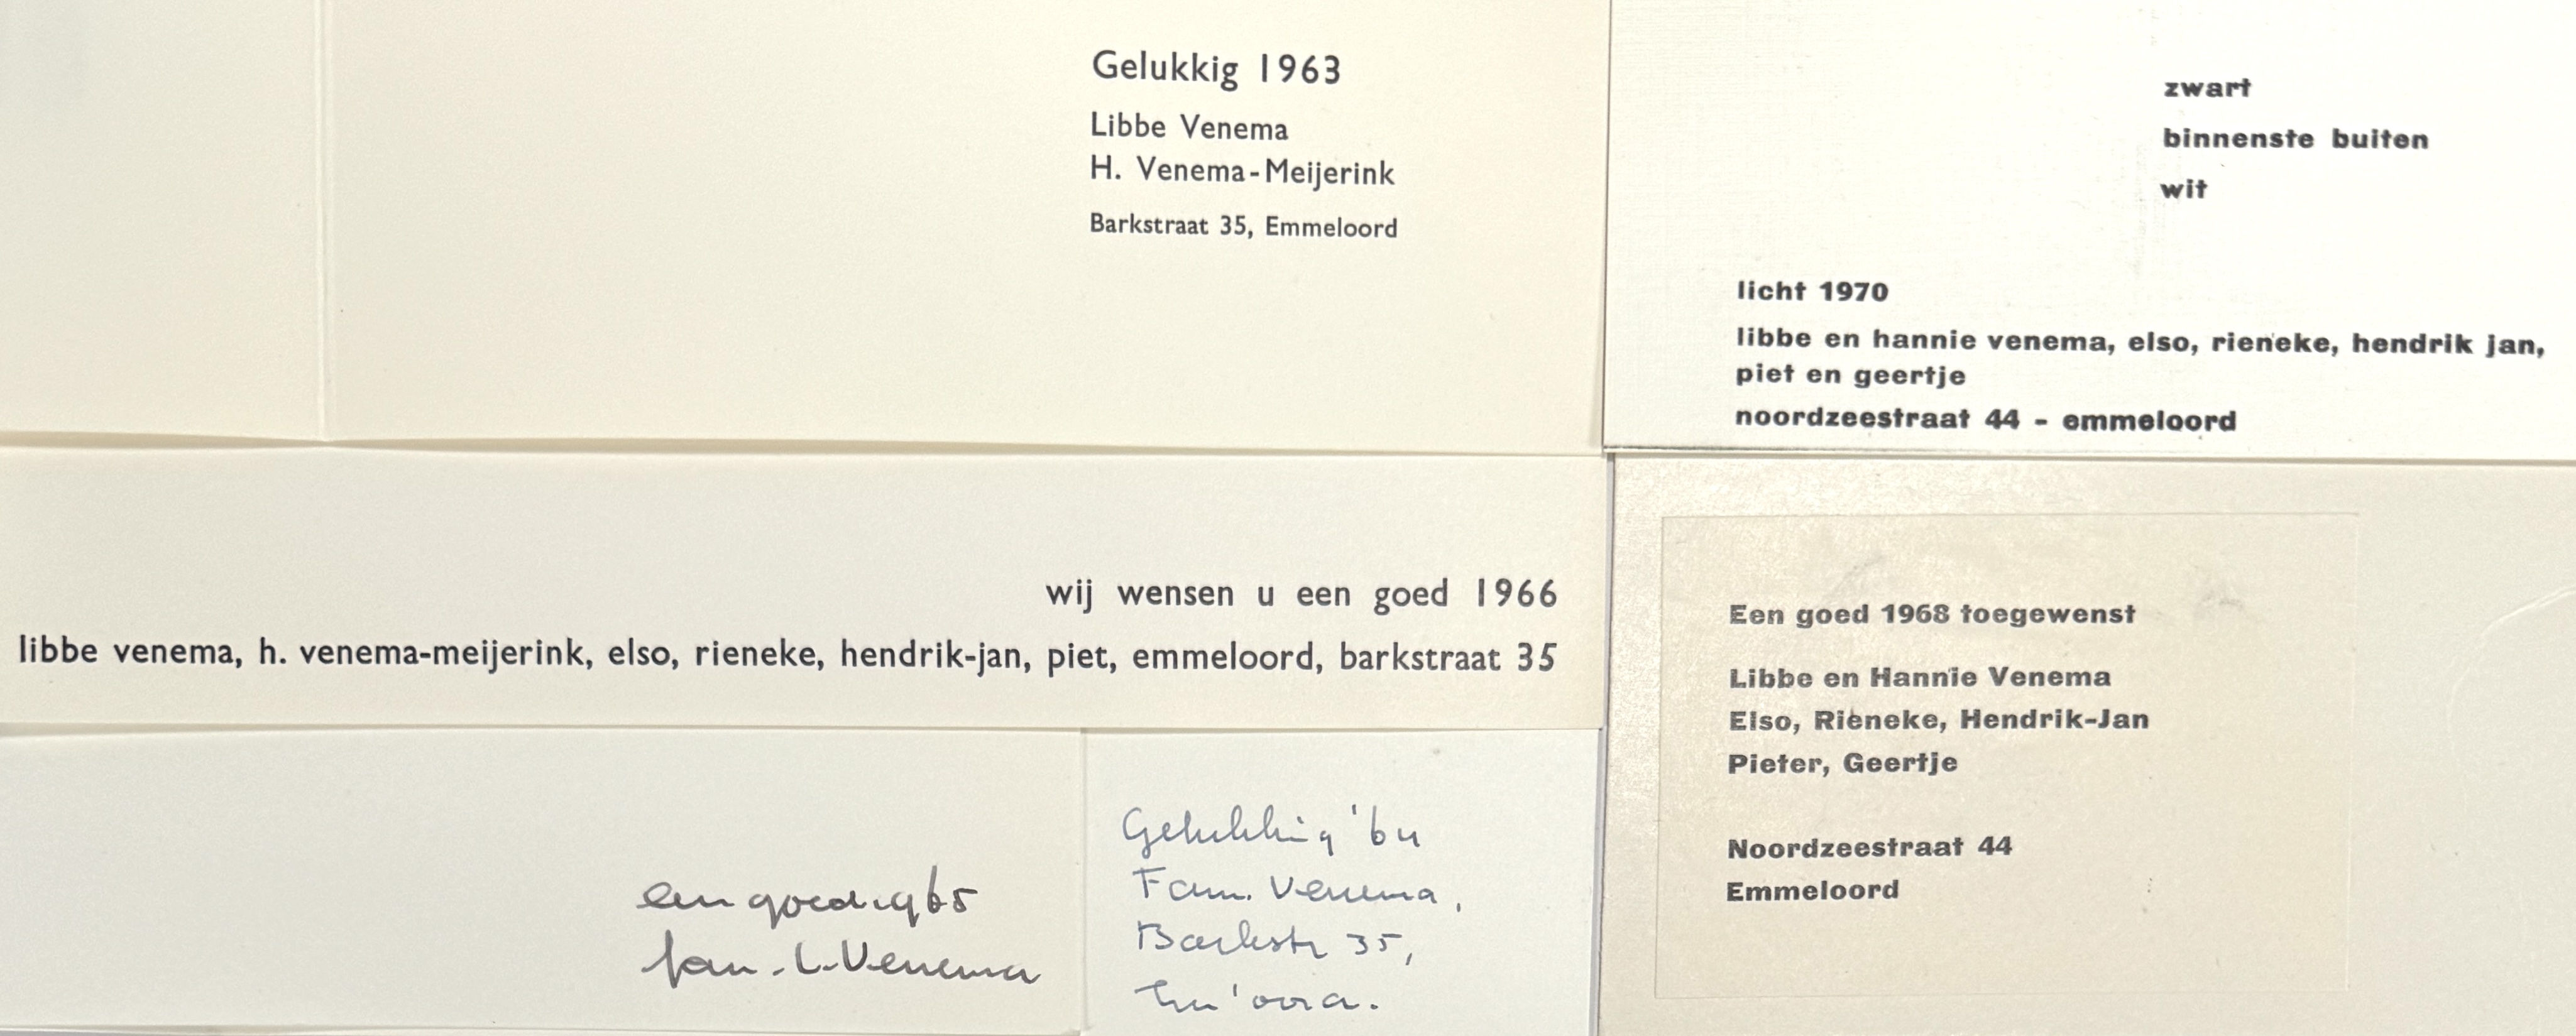 Gelukkig 1963
Libbe Venema
H. Venema-Meijerink
Barkstraat 35, Emmeloord
zwart
binnenste buiten
wit
licht 1970
libbe en hannie venema, elso, rieneke, hendrik jan,
piet en geertje
noordzeestraat 44 - emmeloord
wij wensen u een goed 1966
libbe venema, h. venema-meijerink, elso, rieneke, hendrik-jan, piet, emmeloord, barkstraat 35
een goed 1965
fam. L. Venema
Gelukkig '64
Fam. Venema,
Barkstr 35,
Em'oord.
Een goed 1968 toegewenst
Libbe en Hannie Venema
Elso, Rieneke, Hendrik-Jan
Pieter, Geertje
Noordzeestraat 44
Emmeloord